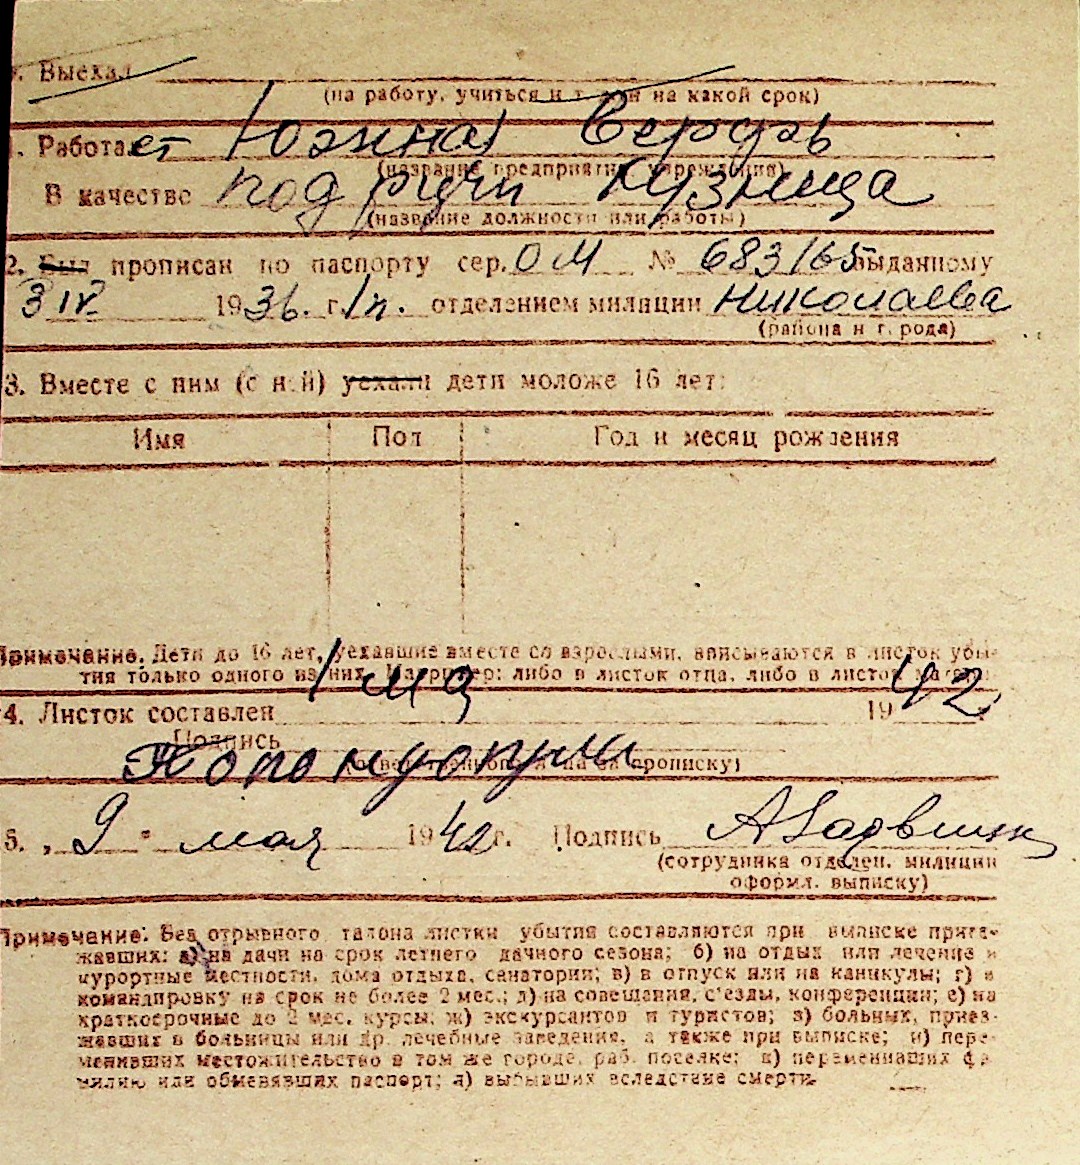 Выехал
(на работу, учиться и т. д. и на какой срок)
Работает Южная Верфь
(название предприятия, учреждения)
В качестве под ручн Кузнеца
(название должности или работы)
2. Был прописан по паспорту сер. ОМ № 683165 выданному
3 IV 1936. г. 1п. отделением милиции Николаева
(района и города)
3. Вместе с ним (с ней) уехали дети моложе 16 лет:
Имя Пол Год и месяц рождения
Примечание. Дети до 16 лет, уехавшие вместе со взрослыми, вписываются в листок убы-
тия только одного из них. Например: либо в листок отца, либо в листок матери.
4. Листок составлен 1 ма 1942
Подпись
(ответственного лица за прописку)
5. „ 9 " мая 1942 г. Подпись
(сотрудника отделен. милиции
оформл. выписку)
Примечание: Без отрывного талона листки убытия составляются при выписке приез-
жавших: а) на дачи на срок летнего дачного сезона; б) на отдых или лечение в
курортные местности, дома отдыха, санатории; в) в отпуск или на каникулы; г) в
командировку на срок не более 2 мес.; д) на совещания, с'езды, конференции; е) на
краткосрочные до 2 мес. курсы; ж) экскурсантов и туристов; з) больных, приез-
жавших в больницы или др. лечебные заведения, а также при выписке; и) пере-
менивших местожительство в том же городе, раб. поселке; к) переменивших фа-
милию или обменявших паспорт; л) выбывших вследствие смерти.